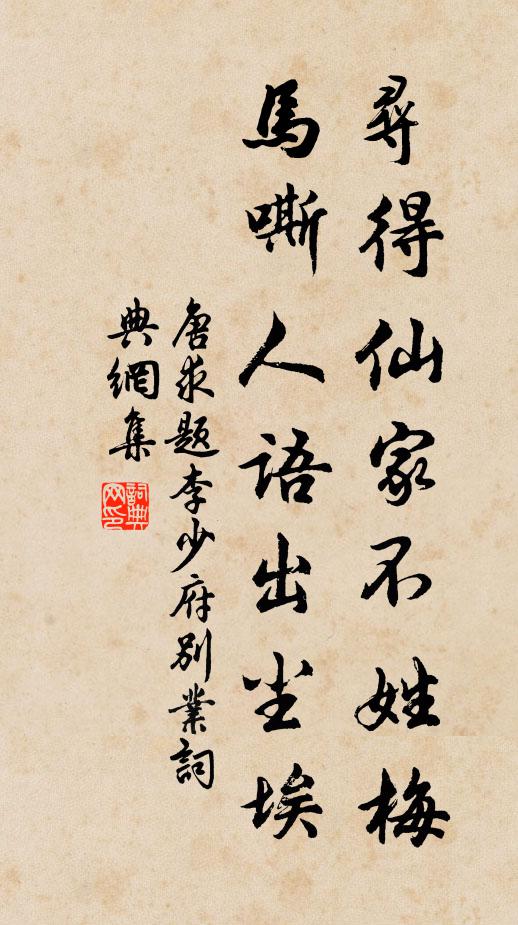 尋得仙家不姓梅
馬嘶人語出尘埃
唐求題李少府別業詞
典網集
詞典
网印